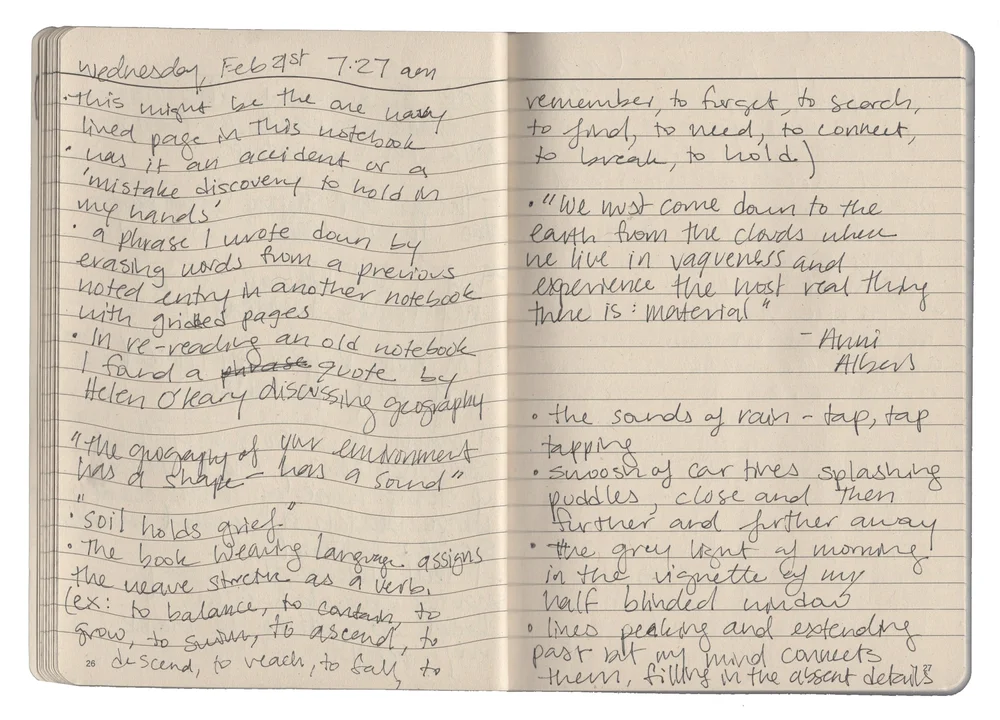 Wednesday, Feb 21st 7:27 am
• this might be the one wavy
lined page in this notebook
• was it an accident or a
'mistake discovery to hold in
my hands'
• a phrase I wrote down by
erasing words from a previous
noted entry in another notebook
with gridded pages
• In re-reading an old notebook
I found a phrase quote by
Helen O'Leary discussing geography
"the geography of your environment
has a shape – has a sound"
• "soil holds grief."
• The book Weaving Language assigns
the weave structure as a verb.
(ex: to balance, to contain, to
grow, to swim, to ascend, to
descend, to reach, to fall, to
26
remember, to forget, to search,
to find, to need, to connect,
to break, to hold.)
• "We must come down to the
earth from the clouds where
we live in vagueness and
experience the most real thing
there is: material"
– Anni
Albers
• the sounds of rain – tap, tap
tapping
• swoosh of car tires splashing
puddles, close and then
further and further away
• the grey light of morning
in the vignette of my
half blinded window
• lines peaking and extending
past but my mind connects
them, filling in the absent details